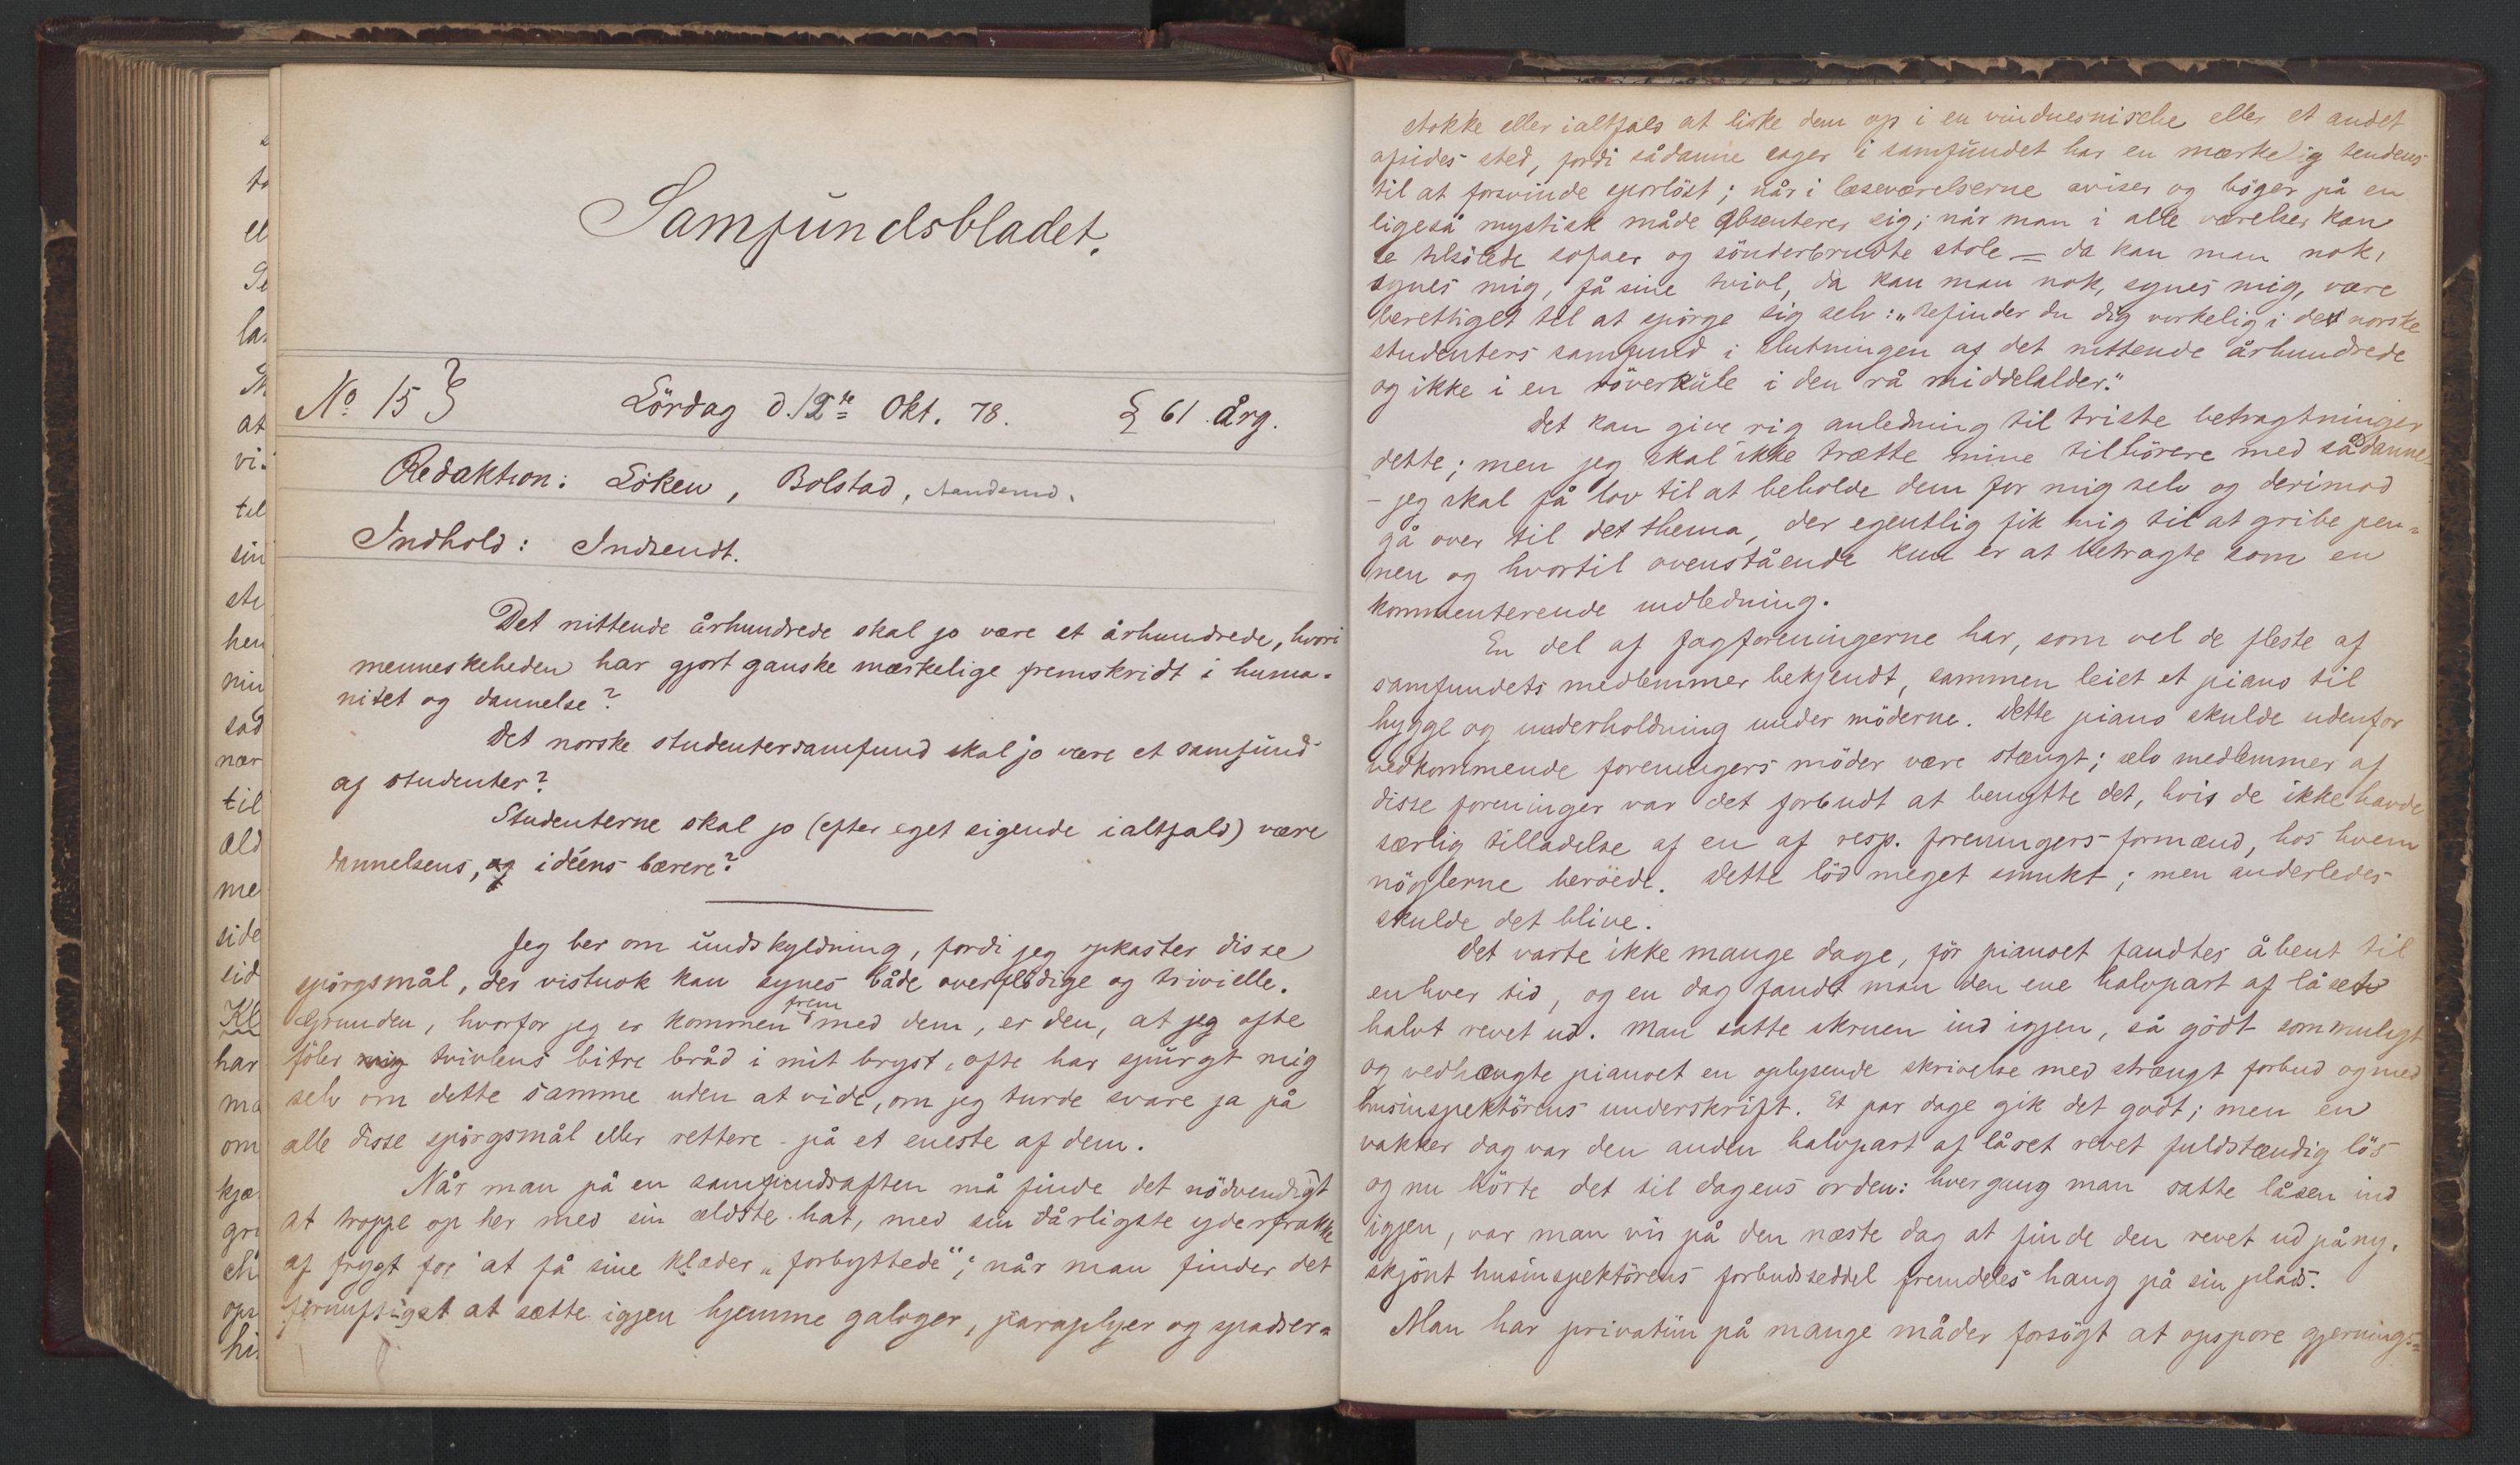 Samfundsbladet.
No 15 Lördag d. 12te Okt. 78. 61 Årg.
Redaktion: Löken, Bolstad,
Indhold: Indsendt.
Det nittende århundrede skal jo være et århundrede, hvori
menneskeheden har gjort ganske mærkelige fremskridt i huma-
nitet og dannelse?
Det norske studentersamfund skal jo være et samfund
af studenter?
Studenterne skal jo (efter eget sigende ialtfald) være
dannelsens, og idéens bærere?
Jeg ber om undskyldning, fordi jeg opkaster disse
spörgsmål, der vistnok kan synes både overflödige og trivielle.
Grunden, hvorfor jeg er kommen frem med dem, er den, at jeg ofte
föler mig tvivlens bitre bråd i mit bryst, ofte har spurgt mig
selv om dette samme uden at vide, om jeg turde svare ja på
alle disse spörgsmål eller rettere på et eneste af dem.
Når man på en samfundsaften må finde det nödvendigt
at troppe op her med sin ældste hat, med sin dårligste yderfrakke
af frygt for at få sine klæder „forbyttede“; når man finder det
fornuftigst at sætte igjen hjemme galoger, paraplyer og spadser-
stokke eller ialtfald at liste dem op i en vinduesnische eller et andet
afsides sted, fordi sådanne sager i samfundet har en mærkelig tendens
til at forsvinde sporlöst; når i læseværelserne aviser og böger på en
ligeså mystisk måde absenterer sig; når man i alle værelser kan
se tilsölede sofaer og sönderbrudte stole — da kan man nok,
synes mig, få sine tvivl, da kan man nok, synes mig, være
berettiget til at spörge sig selv: „Befinder du dig virkelig i det norske
studenters samfund i slutningen af det nittende århundrede
og ikke i en röverkule i den rå middelalder.“
Det kan give rig anledning til triste betragtninger
dette; men jeg skal ikke trætte mine tilhörere med sådanne
- jeg skal få lov til at beholde dem for mig selv og derimod
gå over til det thema, der egentlig fik mig til at gribe pen-
nen og hvortil ovenstående kun er at betragte som en
kommenterende indledning.
En del af fagforeningerne har, som vel de fleste af
samfundets medlemmer bekjendt, sammen leiet et piano til
hygge og underholdning under möderne. Dette piano skulde udenfor
vedkommende foreningers möder være stængt; selv medlemmer af
disse foreninger var det forbudt at benytte det, hvis de ikke havde
særlig tilladelse af en af resp. foreningers formænd, hos hvem
nöglerne beröede. Dette löd meget smukt; men anderledes
skulde det blive.
Det varte ikke mange dage, för pianoet fandtes åbent til
enhver tid, og en dag fandt man den ene halvpart af låset
halvt revet ud. Man satte skruen ind igjen, så gödt som muligt
og vedhængte pianoet en oplysende skrivelse med strængt forbud og med
husinspektörens underskrift. Et par dage gik det godt; men en
vakker dag var den anden halvpart af låset revet fuldstændig lös
og nu hörte det til dagens orden: hver gang man satte låsen ind
igjen, var man vis på den næste dag at finde den revet ud påny,
skjönt husinspektörens forbudsseddel fremdeles hang på sin plads.
Man har privatim på mange måder forsögt at opspore gjernings-